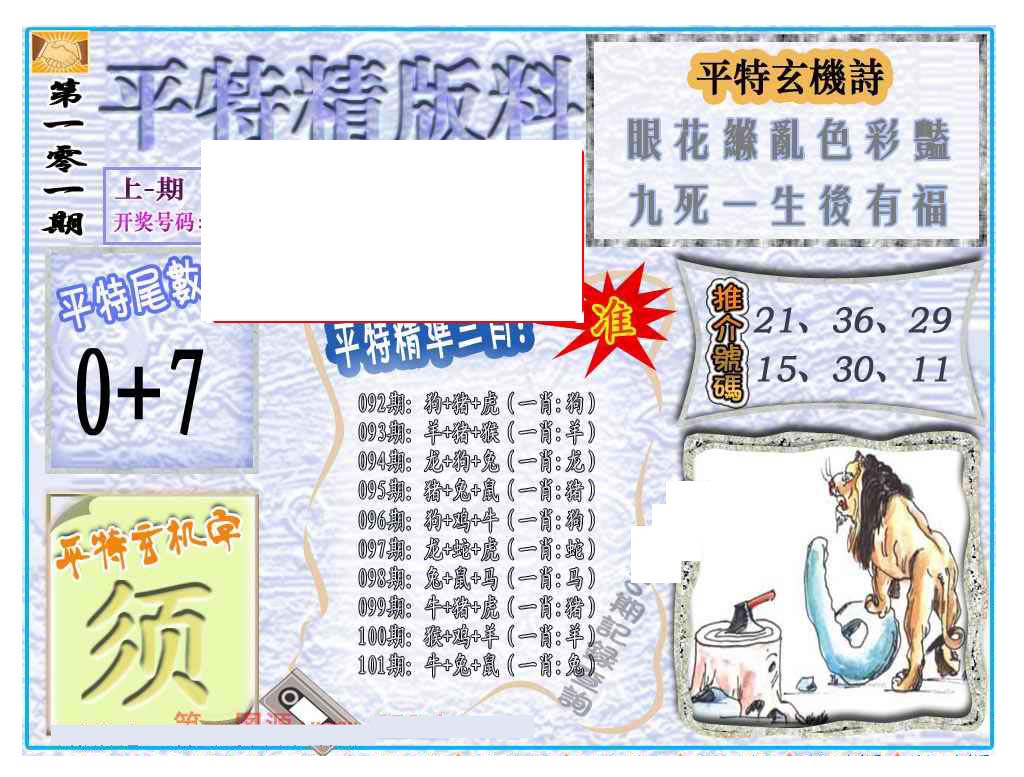 第一零一期
平特精版料
上-期
开奖号码:
平特玄機詩
眼花繚亂色彩豔
九死一生後有福
平特尾數
0+7
平特精準三肖!
准
推介號碼
21、36、29
15、30、11
092期: 狗+猪+虎(一肖:狗)
093期: 羊+猪+猴(一肖:羊)
094期: 龙+狗+兔(一肖:龙)
095期: 猪+兔+鼠(一肖:猪)
096期: 狗+鸡+牛(一肖:狗)
097期: 龙+蛇+虎(一肖:蛇)
098期: 兔+鼠+马(一肖:马)
099期: 牛+猪+虎(一肖:猪)
100期: 猴+鸡+羊(一肖:羊)
101期: 牛+兔+鼠(一肖:兔)
期記録查詢
平特玄机字
须